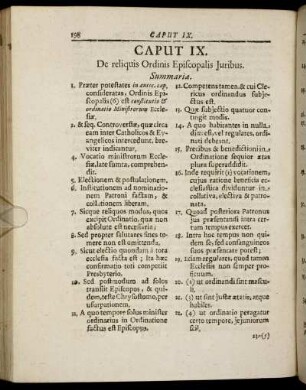 198 CAPUT IX.
CAPUT IX.
De reliquis Ordinis Episcopalis Juribus.
Summaria.
1. Præter potestates in antec. cap.
consideratas, Ordinis Epi-
scopalis (6) est constitutio &
ordinatio Ministrorum Eccle-
siæ.
2. & seq. Controversiæ, quæ circa
eam inter Catholicos & Ev-
angelicos intercedunt, bre-
viter indicantur.
4. Vocatio ministrorum Eccle-
siæ, late sumta, comprehen-
dit.
5. Electionem & postulationem,
6. Institutionem ad nominatio-
nem Patroni factam, &
collationem liberam,
7. Sicque reliquos modos, quos
excipit Ordinatio, quæ non
absolute est necessaria:
8. Sed propter salutares fines te-
mere non est omittenda.
9. Sicut electio quondam à tota
ecclesia facta est; ita hæc
confirmatio teti competiit
Presbyterio.
10. Sed postmodum ad solos
transiit Episcopos, & qui-
dem, teste Chrysostomo, per
usurpationem.
11. A quo tempore solus minister
ordinarius in Ordinatione
factus est Episcopus.
12. Competens tamen, & cui Cle-
ricus ordinandus subje-
ctus est.
13. Quæ subjectio quatuor con-
tingit modis.
14. A quo habitantes in nulla
diœcesi, vel regulares, ordi-
nari debeant.
15. Pactibus & benedictioni in
Ordinatione sequior ætas
plura superaddidit.
16. Inde requirit (1) vocationem,
cujus ratione beneficia ec-
clesiastica dividuntur in
collativa, electiva & patro-
nata.
17. Quoad posteriora Patronus
jus præsentandi intra cer-
tum tempus exercet.
18. Intra hoc tempus non qui-
dem se; sed consanguineos
suos præsentare potest;
19. Etiam regulares, quod tamen
Ecclesia non semper pro-
ficuum.
20. (2) ut ordinandi sint mascu-
li.
21. (3) ut sint justæ ætatis, atque
habiles.
22. (4) ut ordinatio peragatur
certo tempore, jejuniorum